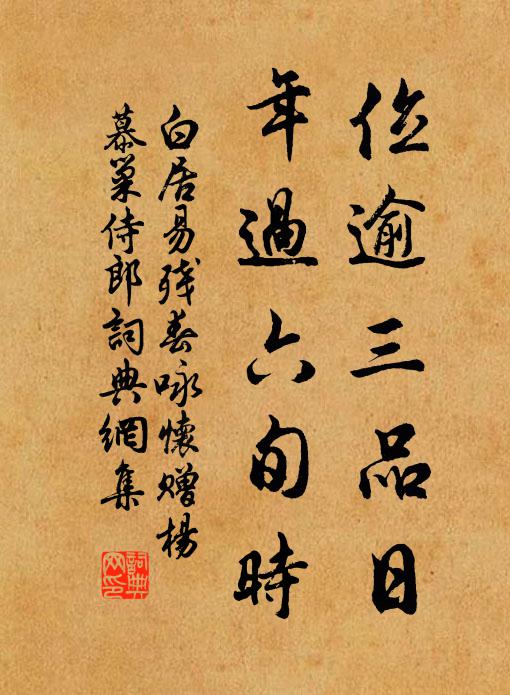 位逾三品日
年過六旬時
白居易残春咏懷贈楊
慕巢侍郎詞典網集
詞典网印